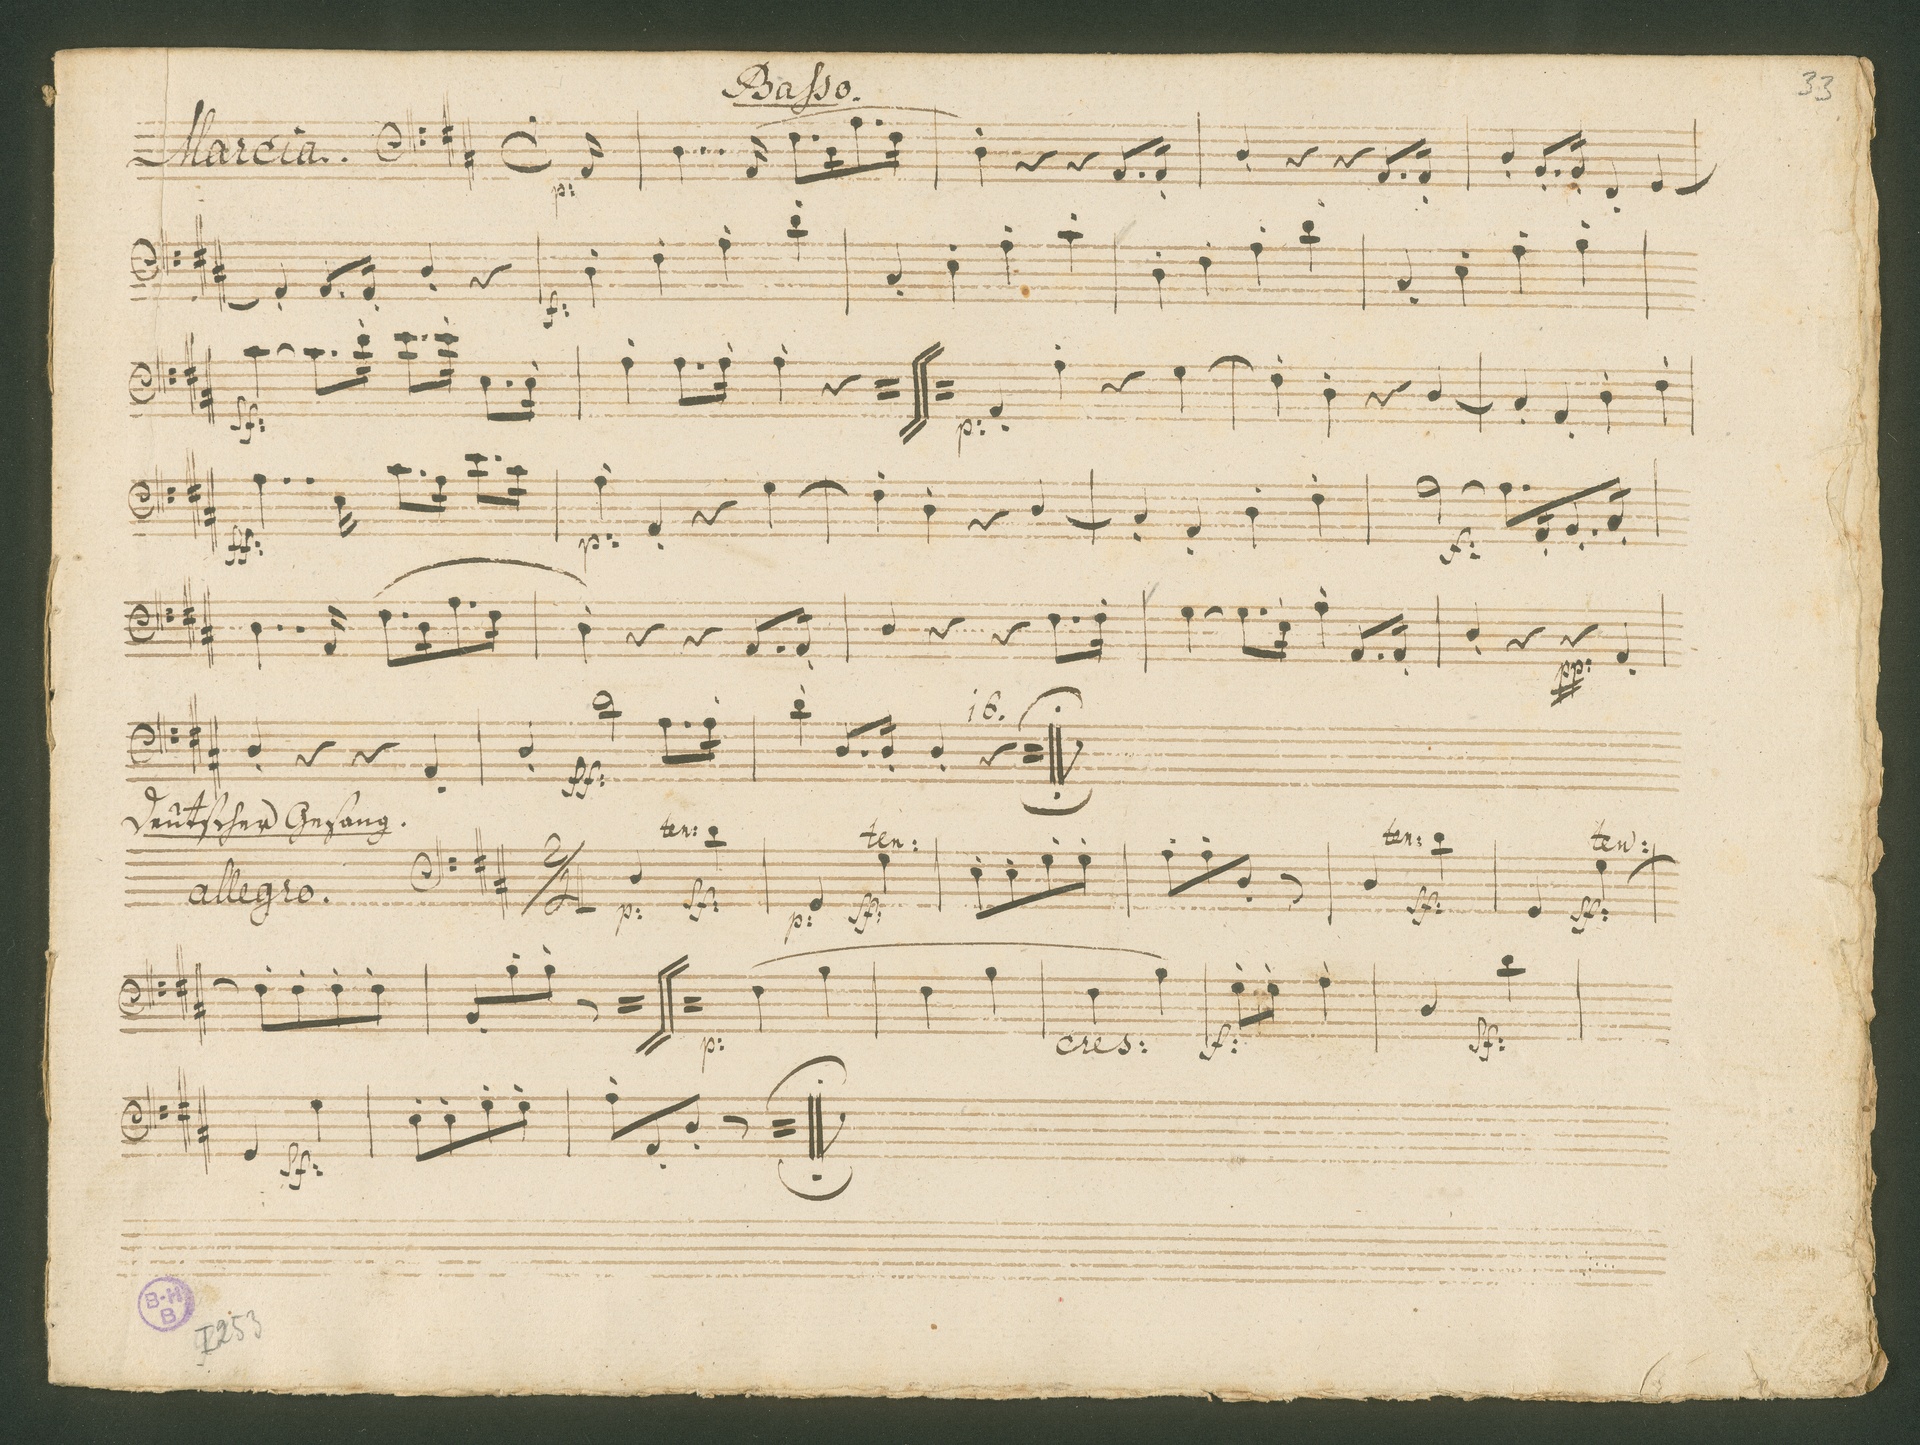 33
Basso.
Marcia..
p:
f:
sf:
p:
ff:
p:
f:
pp:
sf:
16.
Deutscher Gesang.
allegro.
2/4
ten:
ten:
ten:
ten:
p:
sf:
p:
sf:
sf:
sf:
p:
cres:
sf:
sf:
sf:
B-H
B
I 253